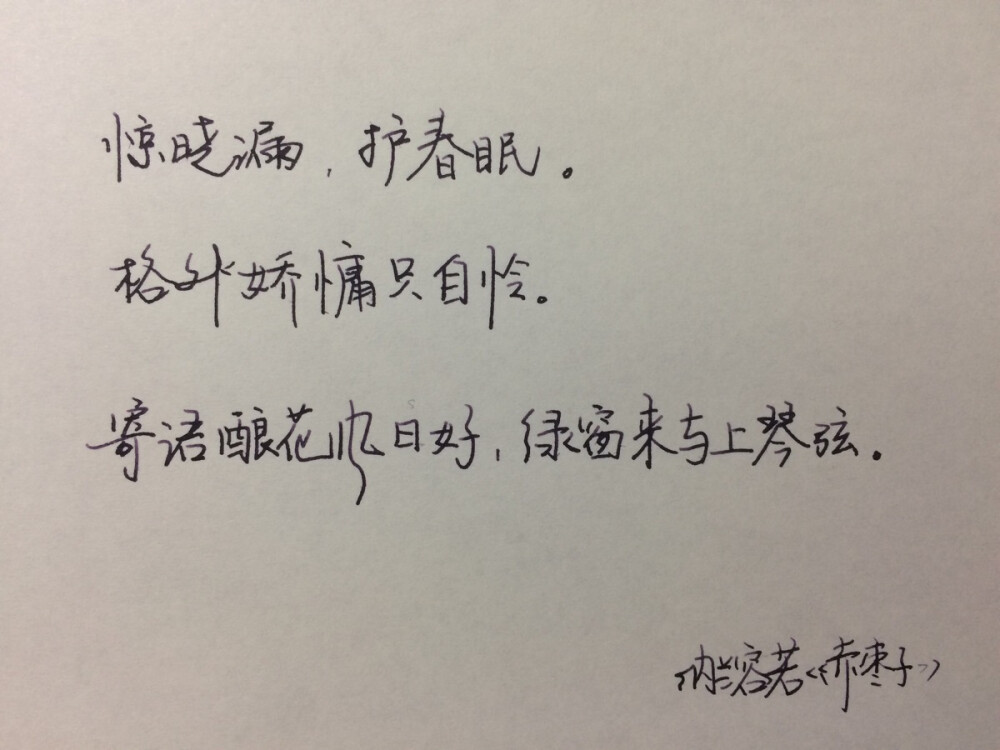 惊晓漏，护春眠。
格外娇慵只自怜。
寄语酿花风日好，绿窗来与上琴弦。
纳兰容若《赤枣子》